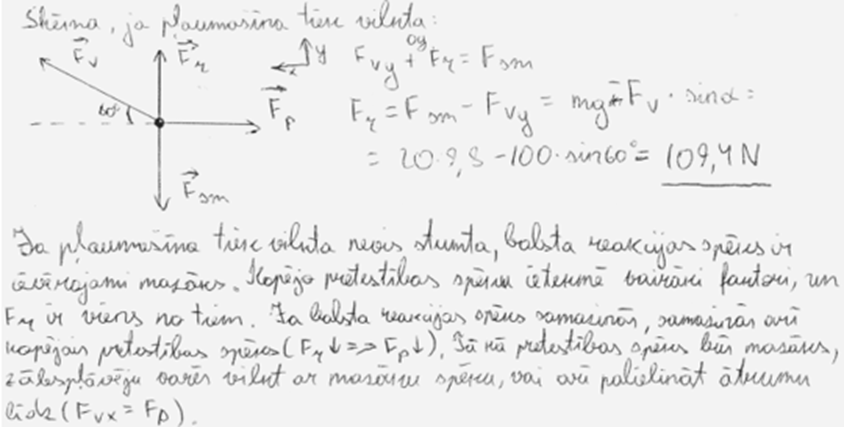 Shēma, ja pļaumašīna tiek vilkta:
F⃗v
F⃗r
y
x
oy
Fvy + Fr = Fsm
60°
F⃗p
Fr = Fsm - Fvy = mg - Fv · sinα =
= 20·9,8 - 100·sin60° = 109,4 N
F⃗sm
Ja pļaumašīna tiek vilkta nevis stumta, balsta reakcijas spēks ir
ievērojami mazāks. Kopējo pretestības spēku ietekmē vairāki faktori, un
Fr ir viens no tiem. Ja balsta reakcijas spēks samazinās, samazinās arī
kopējais pretestības spēks (Fr↓ => Fp↓). Tā kā pretestības spēks būs mazāks,
zālespļāvēju varēs vilkt ar mazāku spēku, vai arī palielināt ātrumu
līdz (Fvx = Fp).